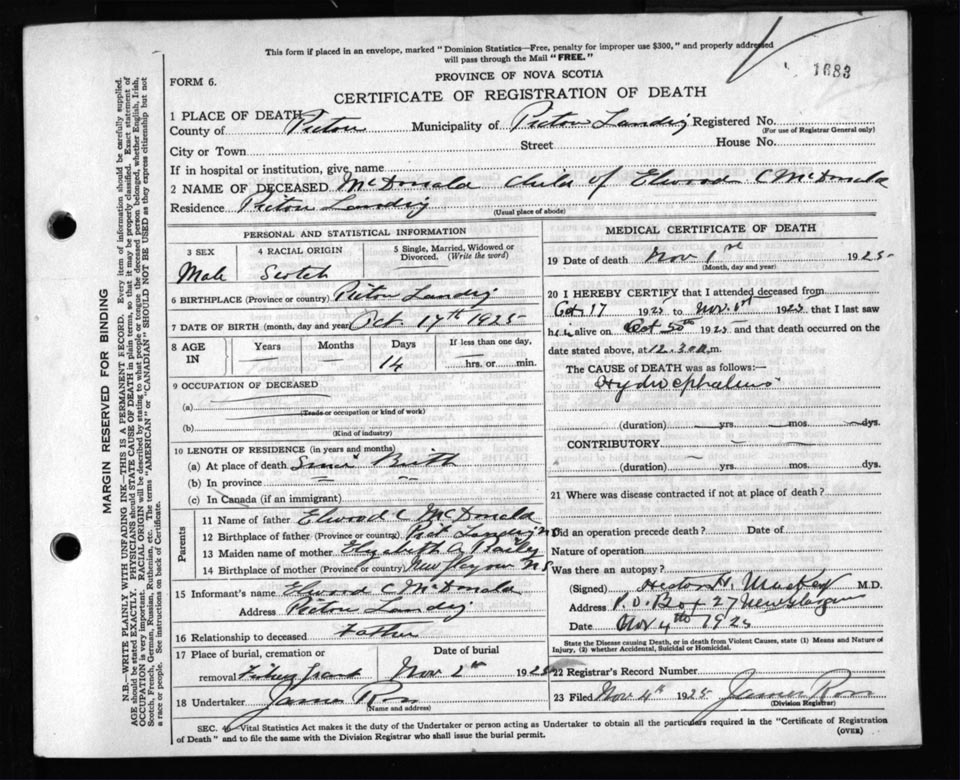 This form if placed in an envelope, marked "Dominion Statistics—Free, penalty for improper use $300," and properly addressed
will pass through the Mail "FREE."
1683
FORM 6.
PROVINCE OF NOVA SCOTIA
CERTIFICATE OF REGISTRATION OF DEATH
1 PLACE OF DEATH
County of Pictou Municipality of Pictou Landing Registered No.
(For use of Registrar General only)
City or Town Street House No.
If in hospital or institution, give name
2 NAME OF DECEASED McDonald child of Elwood C McDonald
Residence Pictou Landing
(Usual place of abode)
PERSONAL AND STATISTICAL INFORMATION
3 SEX 4 RACIAL ORIGIN 5 Single, Married, Widowed or Divorced. (Write the word)
Male Scotch
6 BIRTHPLACE (Province or country) Pictou Landing
7 DATE OF BIRTH (month, day and year) Oct. 17th 1925
8 AGE IN Years Months Days If less than one day,
— — 14 — hrs. or min.
9 OCCUPATION OF DECEASED
(a)
(Trade or occupation or kind of work)
(b)
(Kind of industry)
10 LENGTH OF RESIDENCE (in years and months)
(a) At place of death Since Birth
(b) In province
(c) In Canada (if an immigrant)
Parents
11 Name of father Elwood C McDonald
12 Birthplace of father (Province or country) Pict Landing NS
13 Maiden name of mother Elizabeth A
14 Birthplace of mother (Province or country) New Glasgow N.S
15 Informant's name Elwood C McDonald
Address Pictou Landing
16 Relationship to deceased Father
17 Place of burial, cremation or Date of burial
removal Nov 2nd 1925
18 Undertaker James Ross
(Name and address)
MEDICAL CERTIFICATE OF DEATH
19 Date of death Nov 1st 1925
(Month, day and year)
20 I HEREBY CERTIFY that I attended deceased from
Oct 17 1925 to Nov. 1st 1925 that I last saw
h is alive on Oct 30th 1925 and that death occurred on the
date stated above, at 12.30 a.m.
The CAUSE of DEATH was as follows:—
Hydrocephalus
(duration) — yrs. — mos. — dys.
CONTRIBUTORY — —
(duration) yrs. mos. dys.
21 Where was disease contracted if not at place of death?
Did an operation precede death? Date of
Nature of operation
Was there an autopsy?
(Signed) H. M.D.
Address P.O. Box 27 New Glasgow
Date Nov 4th 1925
State the Disease causing Death, or in death from Violent Causes, state (1) Means and Nature of
Injury, (2) whether Accidental, Suicidal or Homicidal.
22 Registrar's Record Number
23 Filed Nov. 4th 1925 James Ross
(Division Registrar)
SEC. 4. Vital Statistics Act makes it the duty of the Undertaker or person acting as Undertaker to obtain all the particulars required in the "Certificate of Registration
of Death" and to file the same with the Division Registrar who shall issue the burial permit.
(OVER)
MARGIN RESERVED FOR BINDING
N.B.—WRITE PLAINLY WITH UNFADING INK—THIS IS A PERMANENT RECORD. Every item of information should be carefully supplied.
AGE should be stated EXACTLY. PHYSICIANS should STATE CAUSE OF DEATH in plain terms, so that it may be properly classified. Exact statement of
OCCUPATION is very important. RACIAL ORIGIN will be described by stating to what people or tongue the deceased person belonged, whether English, Irish,
Scotch, French, German, Russian, Ruthenian, etc. The terms "AMERICAN" or "CANADIAN" SHOULD NOT BE USED as they express citizenship but not
a race or people. See instructions on back of Certificate.